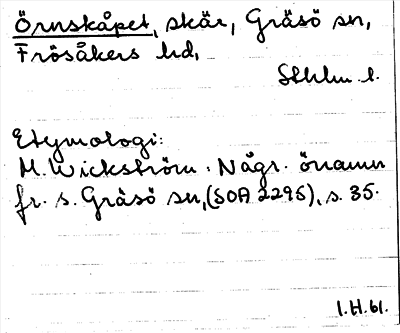 Örnskåpet, skär, Gräsö sn,
Frösåkers hd,
Sthlm l.
Etymologi:
M. Wickström. Någr. önamn
fr. s. Gräsö sn, (SOA 2295), s. 35.
I.H. 61.